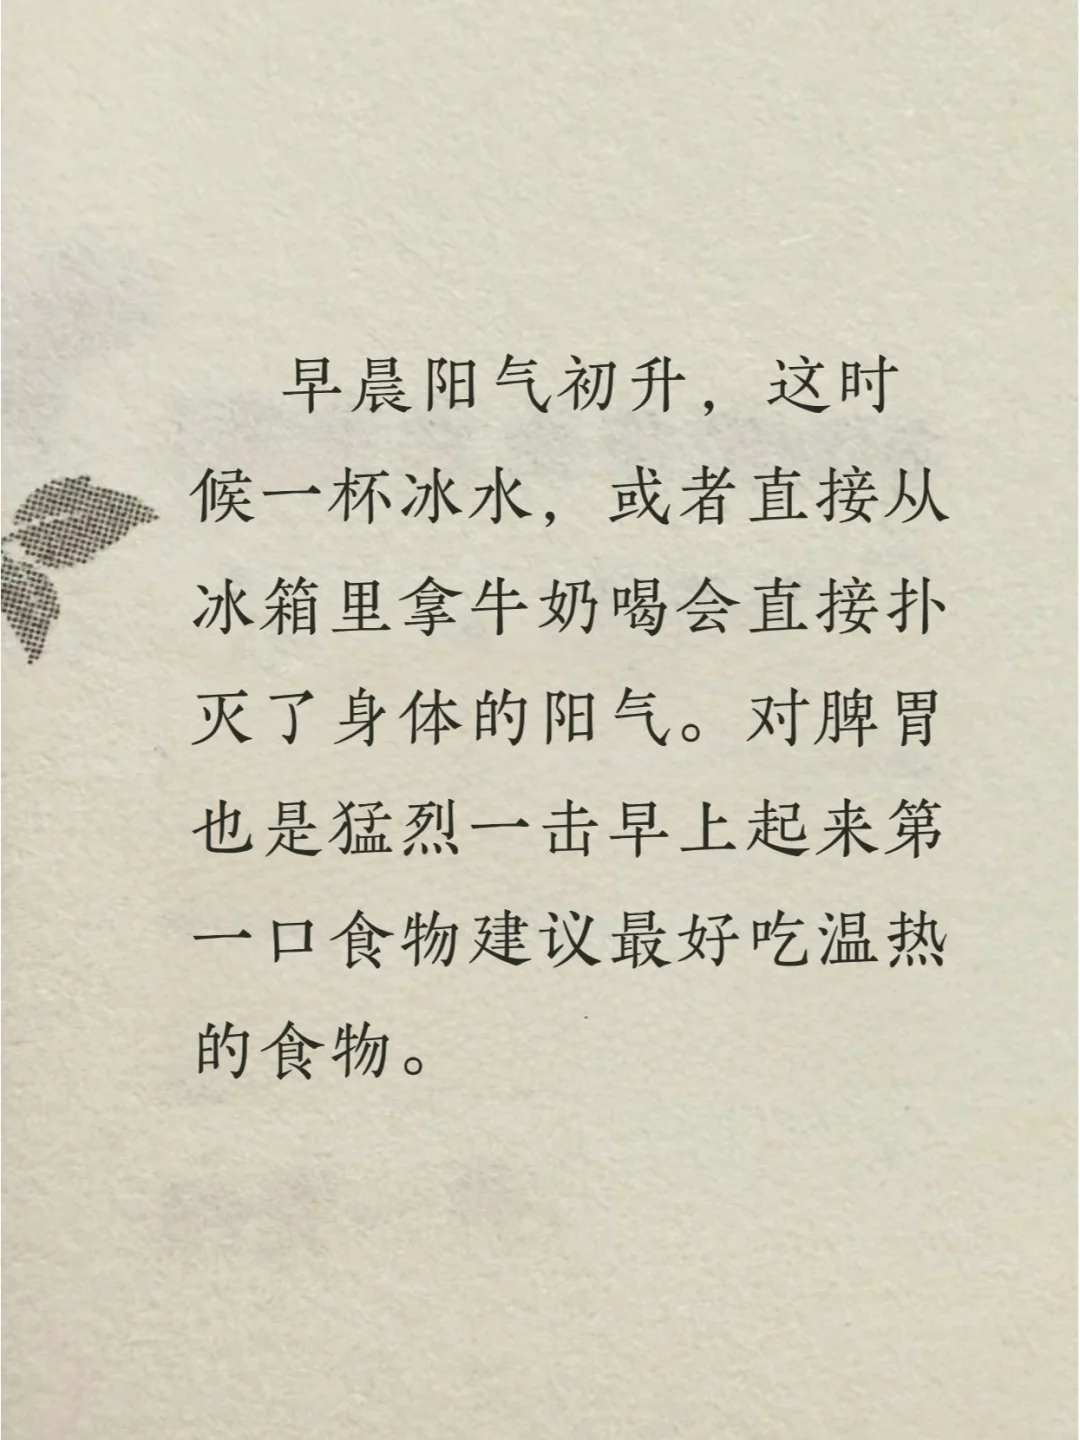 早晨阳气初升，这时
候一杯冰水，或者直接从
冰箱里拿牛奶喝会直接扑
灭了身体的阳气。对脾胃
也是猛烈一击早上起来第
一口食物建议最好吃温热
的食物。